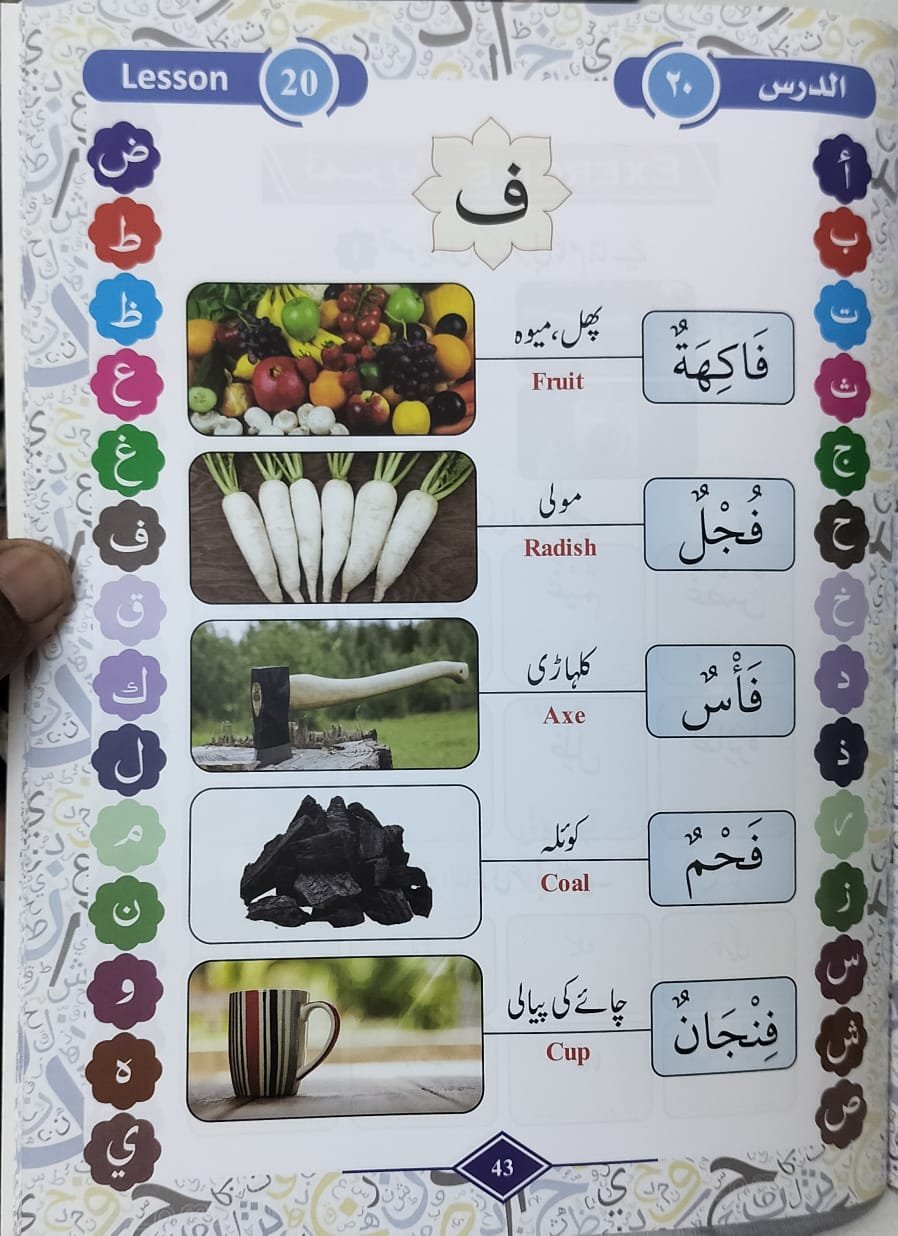 Lesson 20
الدرس ٢٠
ف
فَاكِهَةٌ
پھل، میوہ
Fruit
فُجْلٌ
مولی
Radish
فَأْسٌ
کلہاڑی
Axe
فَحْمٌ
کوئلہ
Coal
فِنْجَانٌ
چائے کی پیالی
Cup
أ
ب
ت
ث
ج
ح
خ
د
ذ
ر
ز
س
ش
ص
ض
ط
ظ
ع
غ
ف
ق
ك
ل
م
ن
و
ه
ي
43